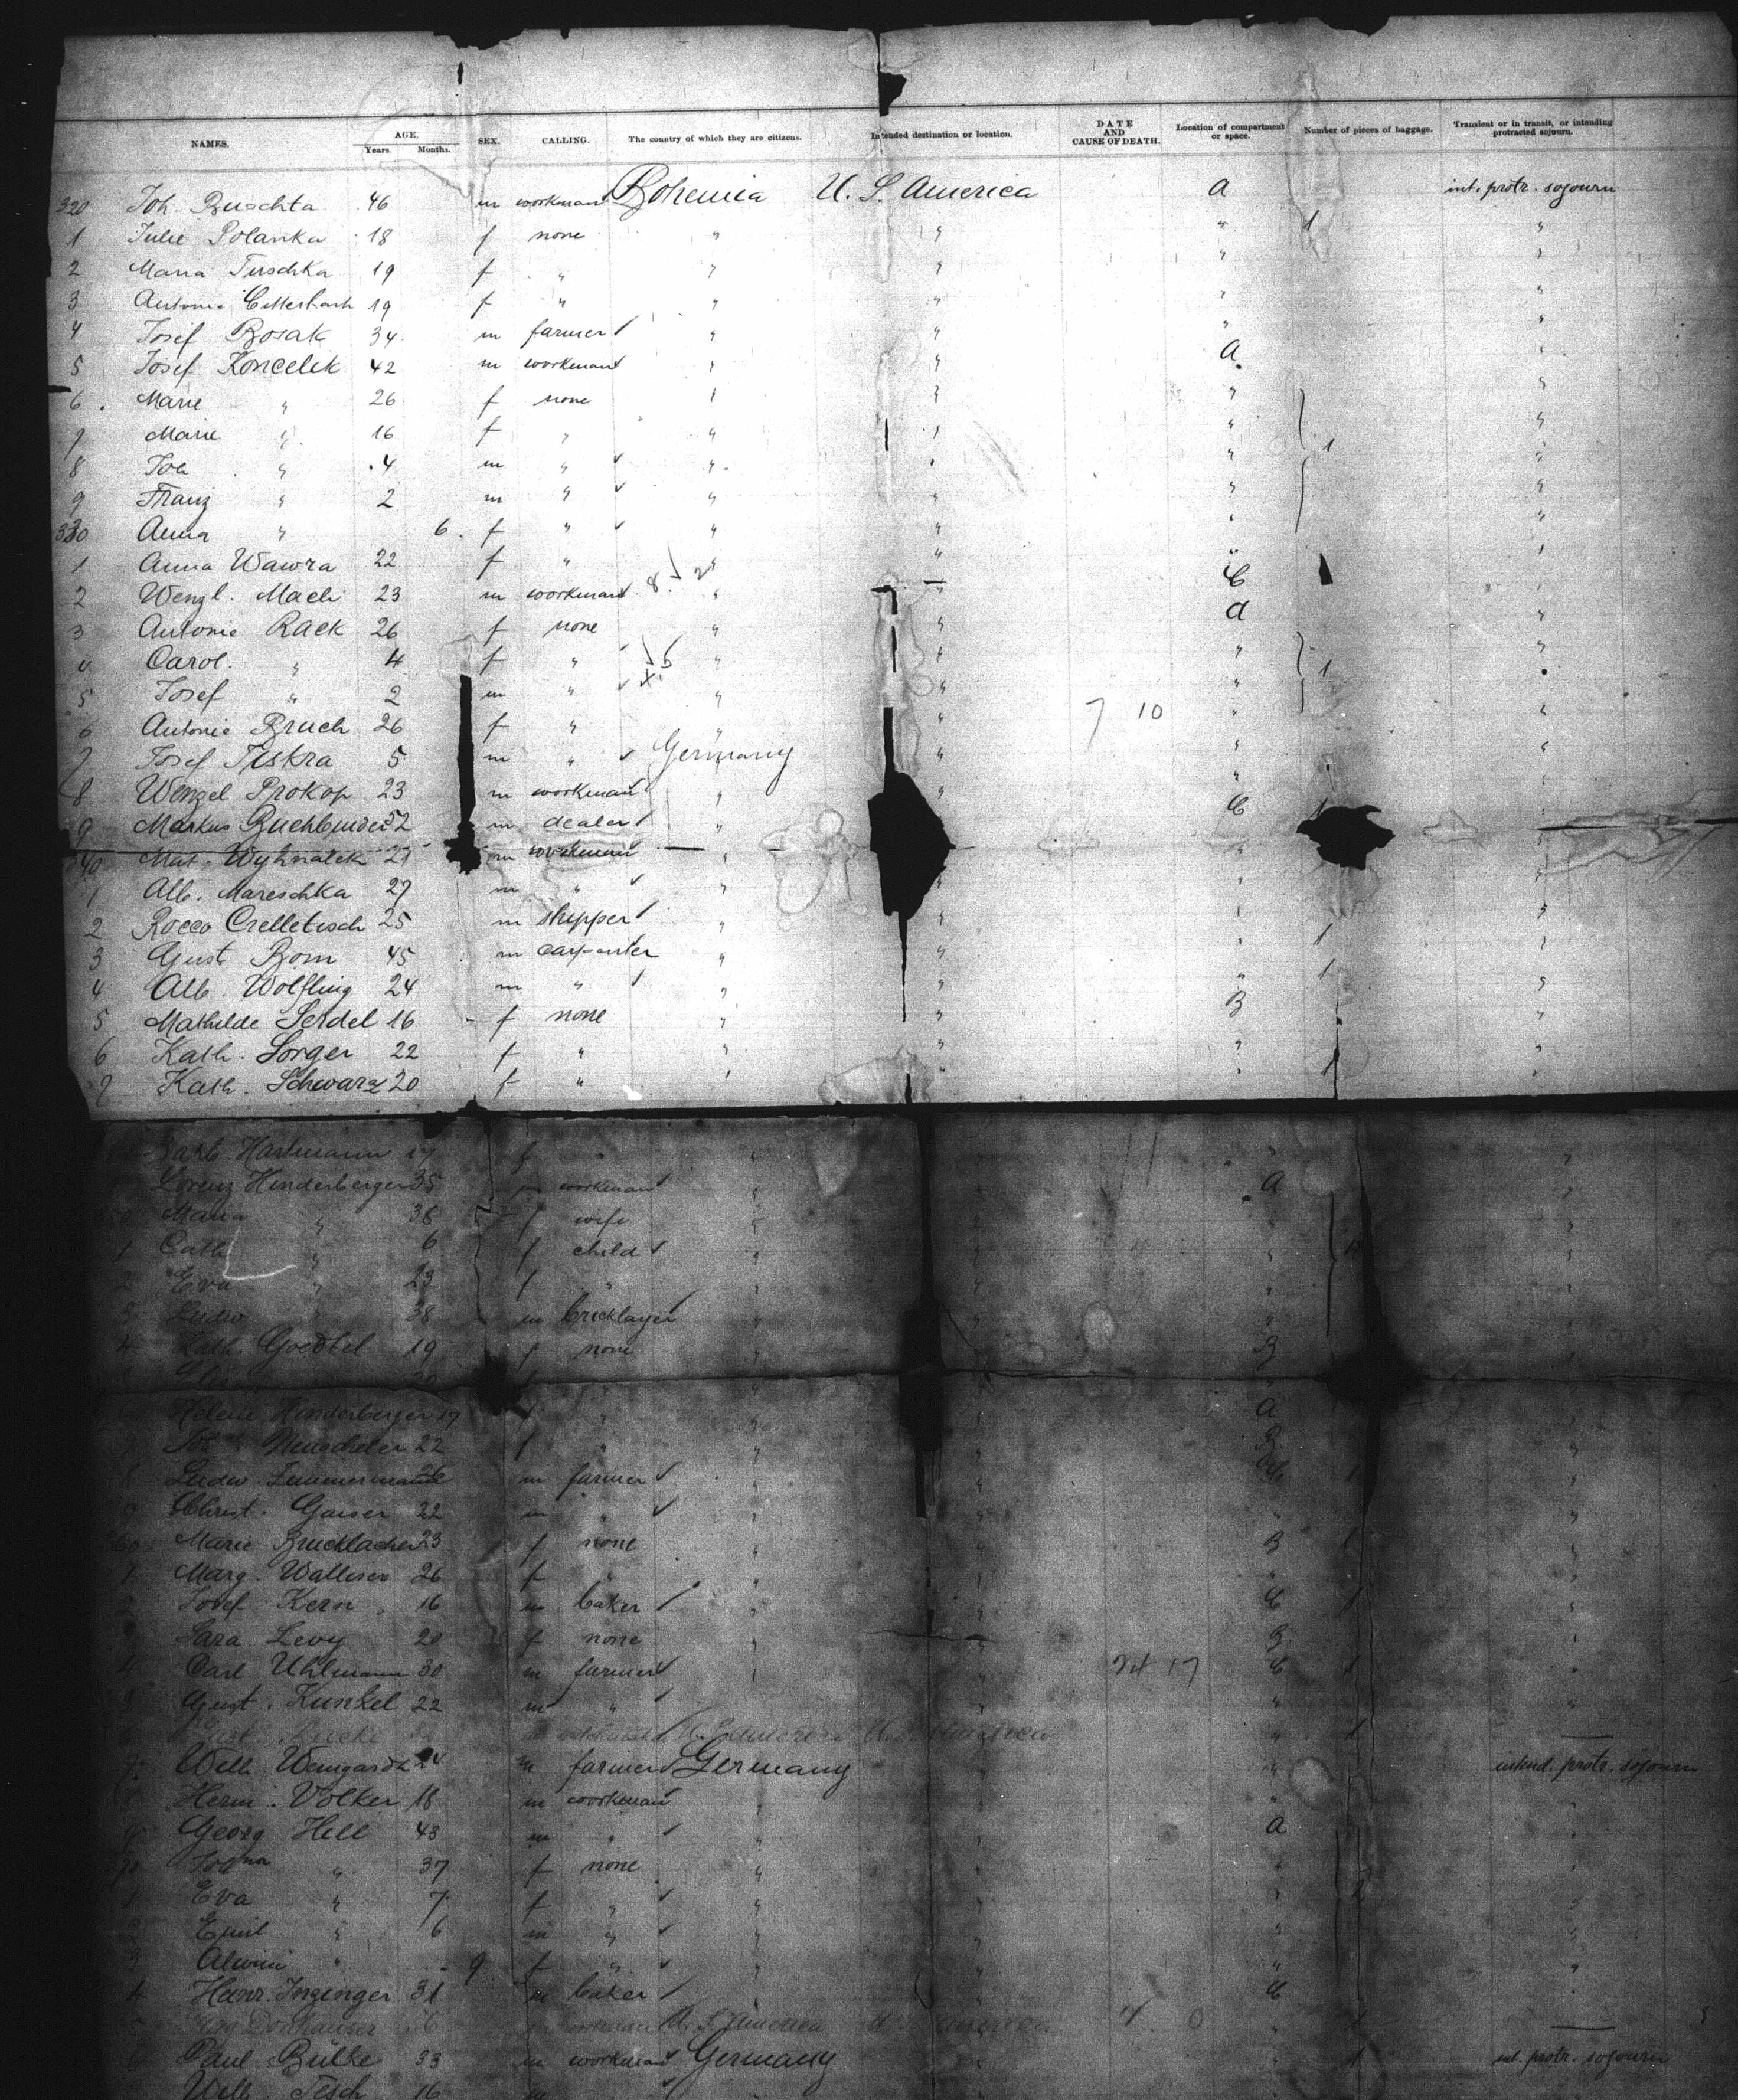 NAMES. AGE. Years. Months. SEX. CALLING. The country of which they are citizens. Intended destination or location. DATE AND CAUSE OF DEATH. Location of compartment or space. Number of pieces of baggage. Transient or in transit, or intending protracted sojourn.
320 Joh. Buschta 46 m workman Bohemia U. S. America a int. protr. sojourn
1 Julie Polanka 18 f none " " " 1 "
2 Maria Turschka 19 f " " " " "
3 Antonie 19 f " " " " "
4 Josef Bosak 34 m farmer " " " "
5 Josef Koncelik 42 m workman " " a "
6 Marie " 26 f none " " " "
7 Marie " 16 f " " " " 1 "
8 Joh " 4 m " " " " "
9 Franz " 2 m " " " " "
330 Anna " 6 f " " " " "
1 Anna Wawra 22 f " " " " "
2 Wenzl. Mach 23 m workman 8 " " C "
3 Antonie Rack 26 f none " " a "
4 Carol. " 4 f " " " " 1 "
5 Josef " 2 m " " " " "
6 Antonie Bruch 26 f " " " 7 10 " "
7 Josef Jiskra 5 m " Germany " " "
8 Wenzel Prokop 23 m workman " " " "
9 Markus Buchbinder 52 m dealer " " C 1 "
340 Mat. Wyhnalek 27 m workman " " " "
1 Alb. Mareschka 27 m " " " " "
2 Rocco Crelletisch 25 m shipper " " " "
3 Gust Born 45 m carpenter " " " 1 "
4 Alb. Wolfling 24 m " " " " 1 "
5 Mathilde Serdel 16 f none " " B "
6 Kath. Sorger 22 f " " " " "
7 Kath. Schwarz 20 f " " " " 1 "
Hartmann f " " " " "
Lorenz Hinderberger 35 m workman " " a "
Maria " 38 f wife " " " "
1 Cath " 6 f child " " " "
2 Eva " 23 f " " " " "
3 Ludw " 38 m bricklayer " " " "
4 Kath. Goettel 19 f none " " B "
20
Helene Hinderberger 19 " " " a
Neuscheler 22 f " " " B "
8 Ludw. Zimmermann m farmer " " C 1 "
9 Christ. Gaiser 22 m " " " " "
360 Marie Brucklacher 23 f none " " B 1 "
1 Marg. Walliser 26 f " " " " "
2 Josef Kern 16 m baker " " C 1 "
3 Sara Levy 20 f none " " B "
4 Carl Uhlmann 30 m farmer " " 24 17 C 1 "
5 Gust. Kunkel 22 m " " " " "
6 Gust. m workman U. S. America U. S. America " 1 —
7 Wilh Weingardt 24 m farmer Germany " " intend. protr. sojourn
8 Herm. Volker 18 m workman " " " "
9 Georg Hell 48 m " " " a "
370 " 37 f none " " " "
1 Eva " 7 f " " " " "
2 Emil " 6 m " " " " "
3 Alwine " 9 f " " " " "
4 Heinr. Inzinger 31 m baker " " C "
5 Donhauser 36 m workman U. S. America U. S. America 4 0 " 1 —
6 Paul Bulke 33 m workman Germany " " 1 int. protr. sojourn
Wilh. Tesch 16 m